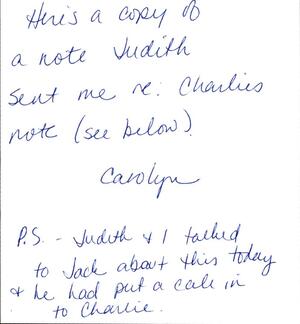 Here's a copy of
a note Judith
sent me re: Charlies
note (see below).
Carolyn
P.S. - Judith & I talked
to Jack about this today
& he had put a call in
to Charlie.